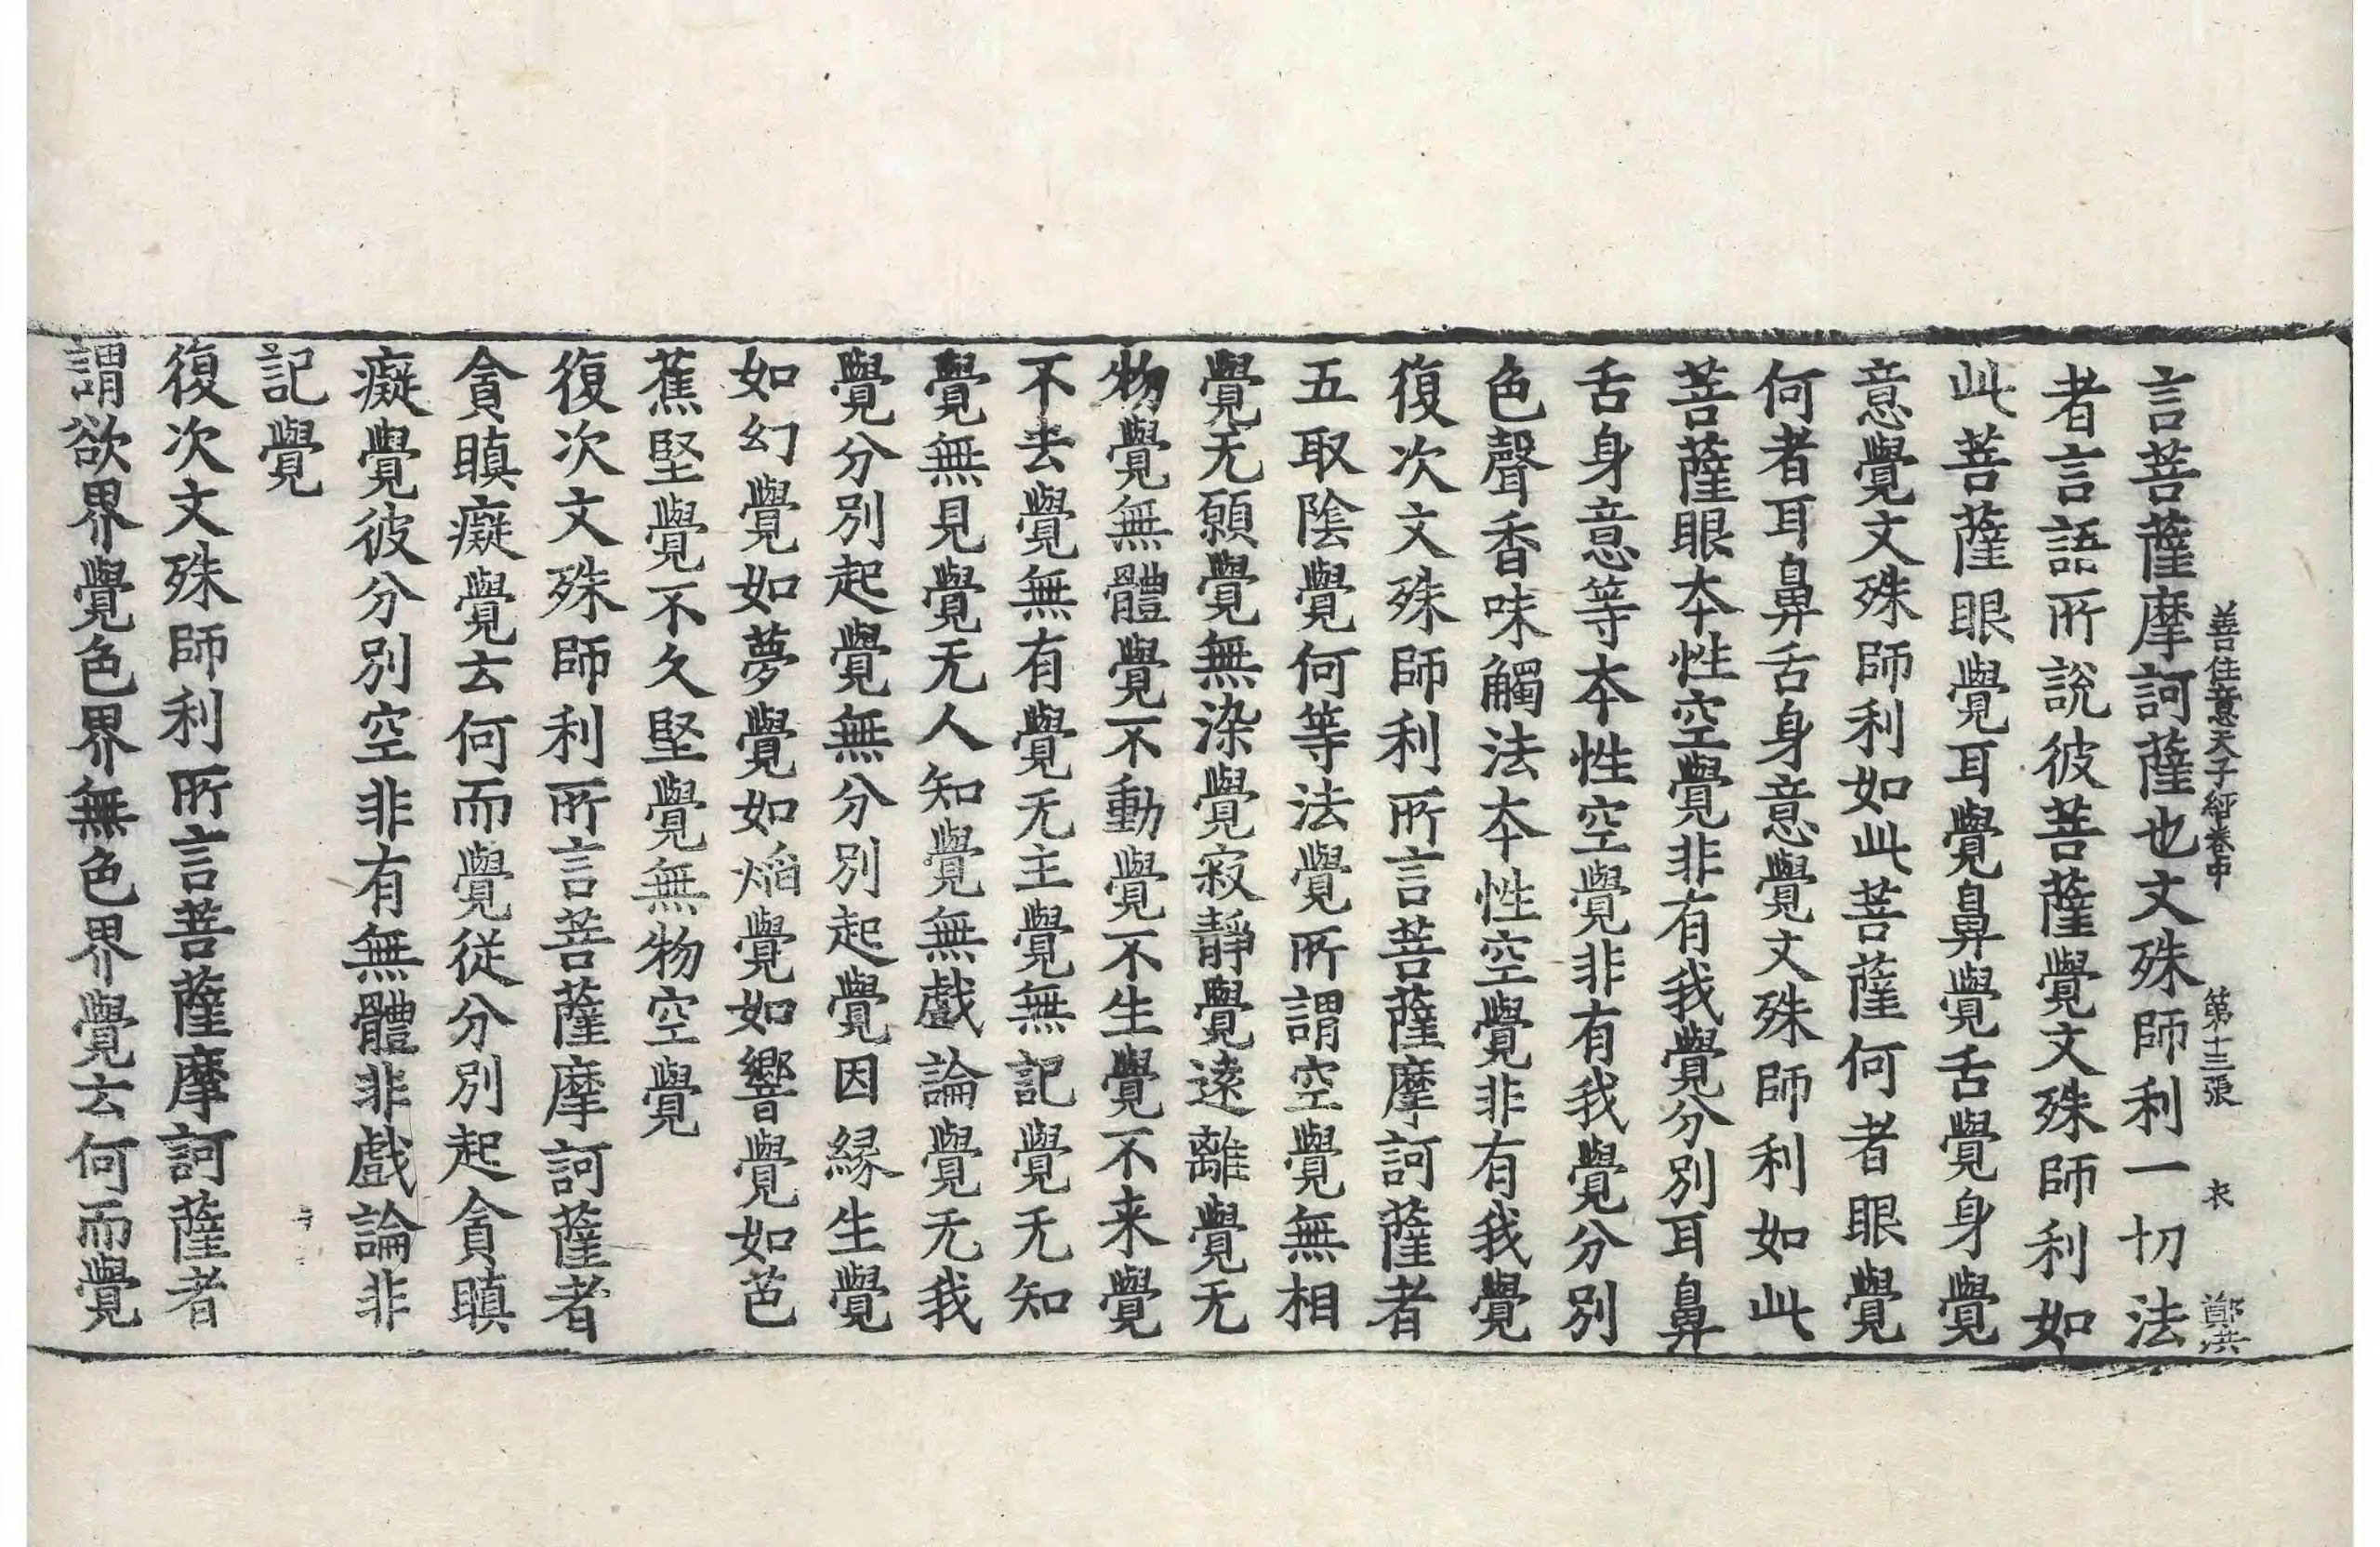 善住意天子經卷中　第十三張　衣　鄭洪
言菩薩摩訶薩也文殊師利一切法
者言語所説彼菩薩覺文殊師利如
此菩薩眼覺耳覺鼻覺舌覺身覺
意覺文殊師利如此菩薩何者眼覺
何者耳鼻舌身意覺文殊師利如此
菩薩眼夲性空覺非有我覺分別耳鼻
舌身意等夲性空覺非有我覺分別
色聲香味觸法夲性空覺非有我覺
復次文殊師利所言菩薩摩訶薩者
五取陰覺何等法覺所謂空覺無相
覺无願覺無染覺寂靜覺遠離覺无
物覺無體覺不動覺不生覺不来覺
不去覺無有覺无主覺無記覺无知
覺無見覺无人知覺無戲論覺无我
覺分別起覺無分別起覺因縁生覺
如幻覺如夢覺如焰覺如響覺如芭
蕉堅覺不久堅覺無物空覺
復次文殊師利所言菩薩摩訶薩者
貪瞋癡覺云何而覺從分別起貪瞋
癡覺彼分別空非有無體非戲論非
記覺
復次文殊師利所言菩薩摩訶薩者
謂欲界覺色界無色界覺云何而覺